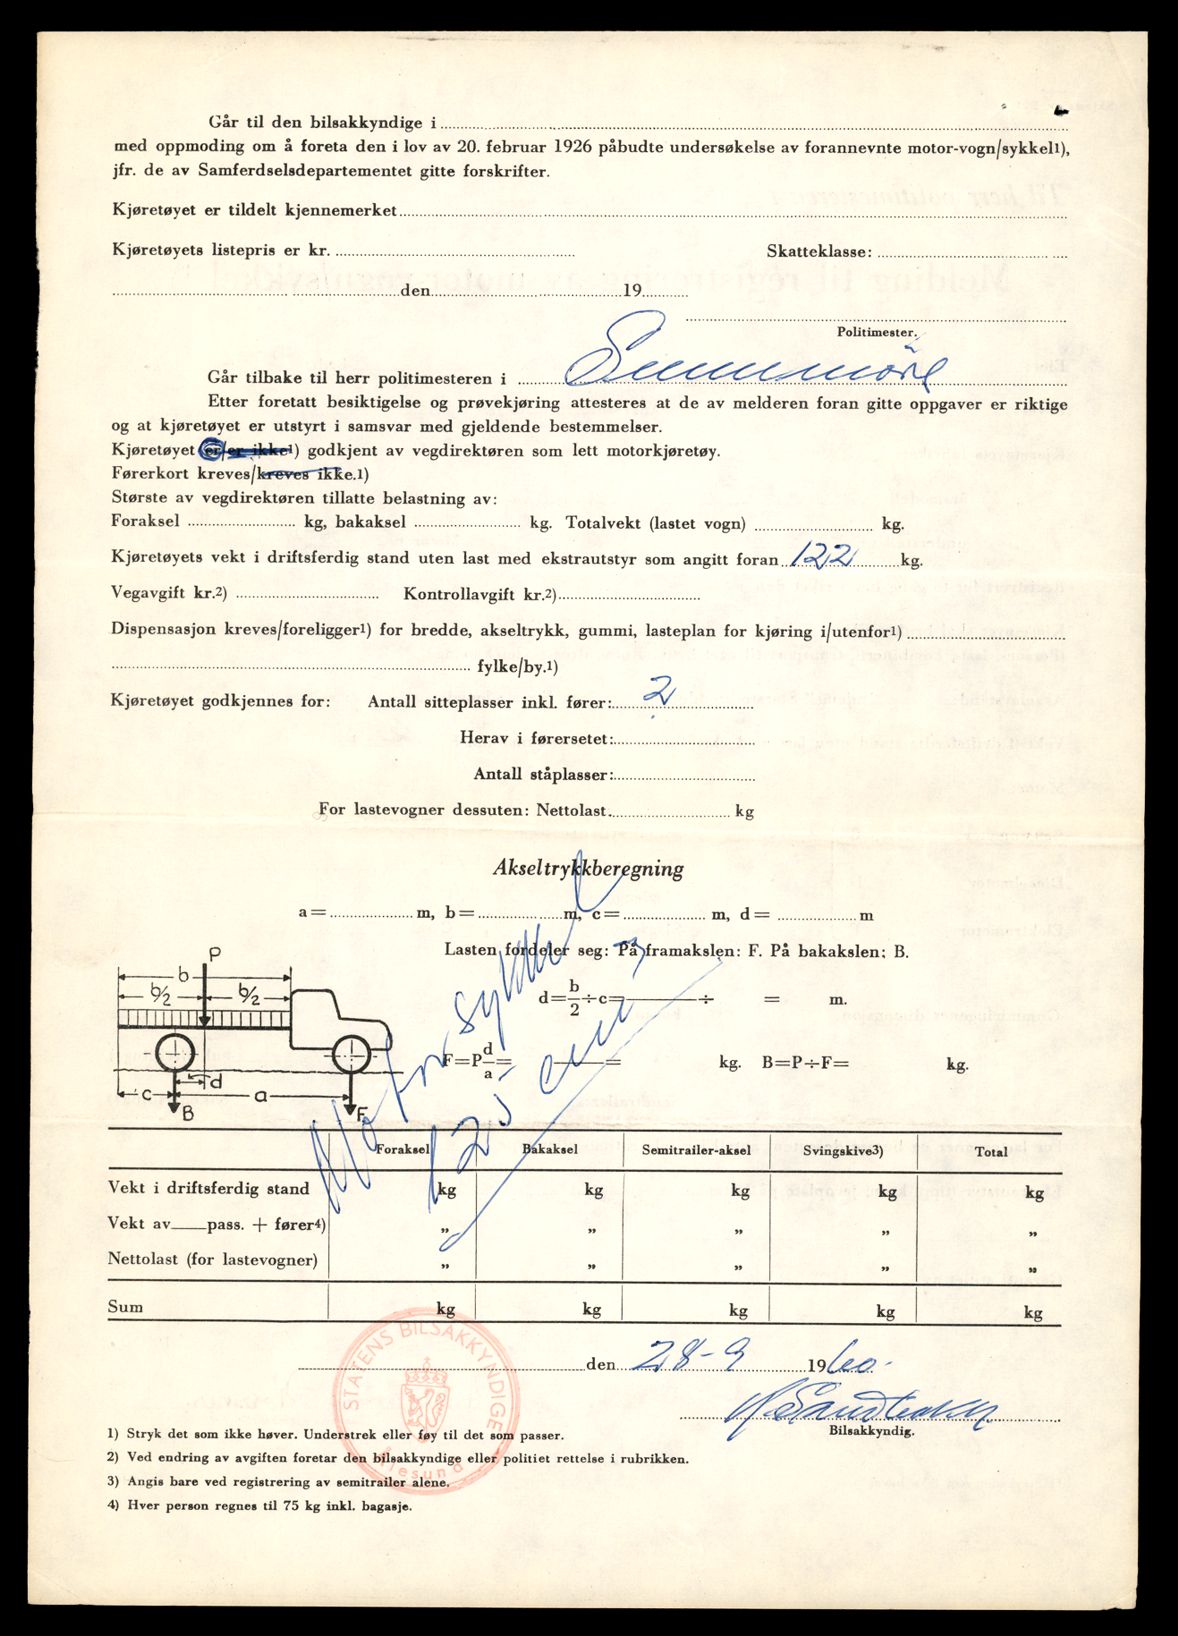 Går til den bilsakkyndige i
med oppmoding om å foreta den i lov av 20. februar 1926 påbudte undersøkelse av forannevnte motor-vogn/sykkel1),
jfr. de av Samferdselsdepartementet gitte forskrifter.
Kjøretøyet er tildelt kjennemerket
Kjøretøyets listepris er kr. Skatteklasse:
den 19
Politimester.
Går tilbake til herr politimesteren i Sunnmøre
Etter foretatt besiktigelse og prøvekjøring attesteres at de av melderen foran gitte oppgaver er riktige
og at kjøretøyet er utstyrt i samsvar med gjeldende bestemmelser.
Kjøretøyet er/er ikke1) godkjent av vegdirektøren som lett motorkjøretøy.
Førerkort kreves/kreves ikke.1)
Største av vegdirektøren tillatte belastning av:
Foraksel kg, bakaksel kg. Totalvekt (lastet vogn) kg.
Kjøretøyets vekt i driftsferdig stand uten last med ekstrautstyr som angitt foran 122 kg.
Vegavgift kr.2) Kontrollavgift kr.2)
Dispensasjon kreves/foreligger1) for bredde, akseltrykk, gummi, lasteplan for kjøring i/utenfor1)
fylke/by.1)
Kjøretøyet godkjennes for: Antall sitteplasser inkl. fører: 2
Herav i førersetet:
Antall ståplasser:
For lastevogner dessuten: Nettolast. kg
Akseltrykkberegning
a= m, b= m, c= m, d= m
Lasten fordeler seg: På framakslen: F. På bakakslen: B.
P
b
b/2 b/2
d=b/2÷c= ÷ = m.
F=P d/a= = kg. B=P÷F= kg.
c d a
B F
Motorsykkel
125 cm3
Foraksel Bakaksel Semitrailer-aksel Svingskive3) Total
Vekt i driftsferdig stand kg kg kg kg kg
Vekt av pass. + fører4) „ „ „ „ „
Nettolast (for lastevogner) „ „ „ „ „
Sum kg kg kg kg kg
STATENS BILSAKKYNDIGE
Ålesund
den 28-9 1960.
Bilsakkyndig.
1) Stryk det som ikke høver. Understrek eller føy til det som passer.
2) Ved endring av avgiften foretar den bilsakkyndige eller politiet rettelse i rubrikken.
3) Angis bare ved registrering av semitrailer alene.
4) Hver person regnes til 75 kg inkl. bagasje.